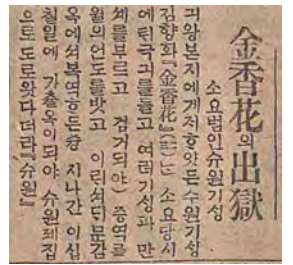 金香花의出獄
소요범인슈원기싱
긔왕본지에게저ᄒᆞ얏든수원기싱
김향화『金香花』(二三)는 소요당시
에 틴극긔를들고 여러기싱과 만
셰를부르고 검거되야 증역륙
월의언도를밧고 이릭셔디문감
옥에셔복역ᄒᆞ든즁 지나간 이십
칠일에 가츌옥이되야 슈원뎨집
으로 도로왓다더라『슈원』